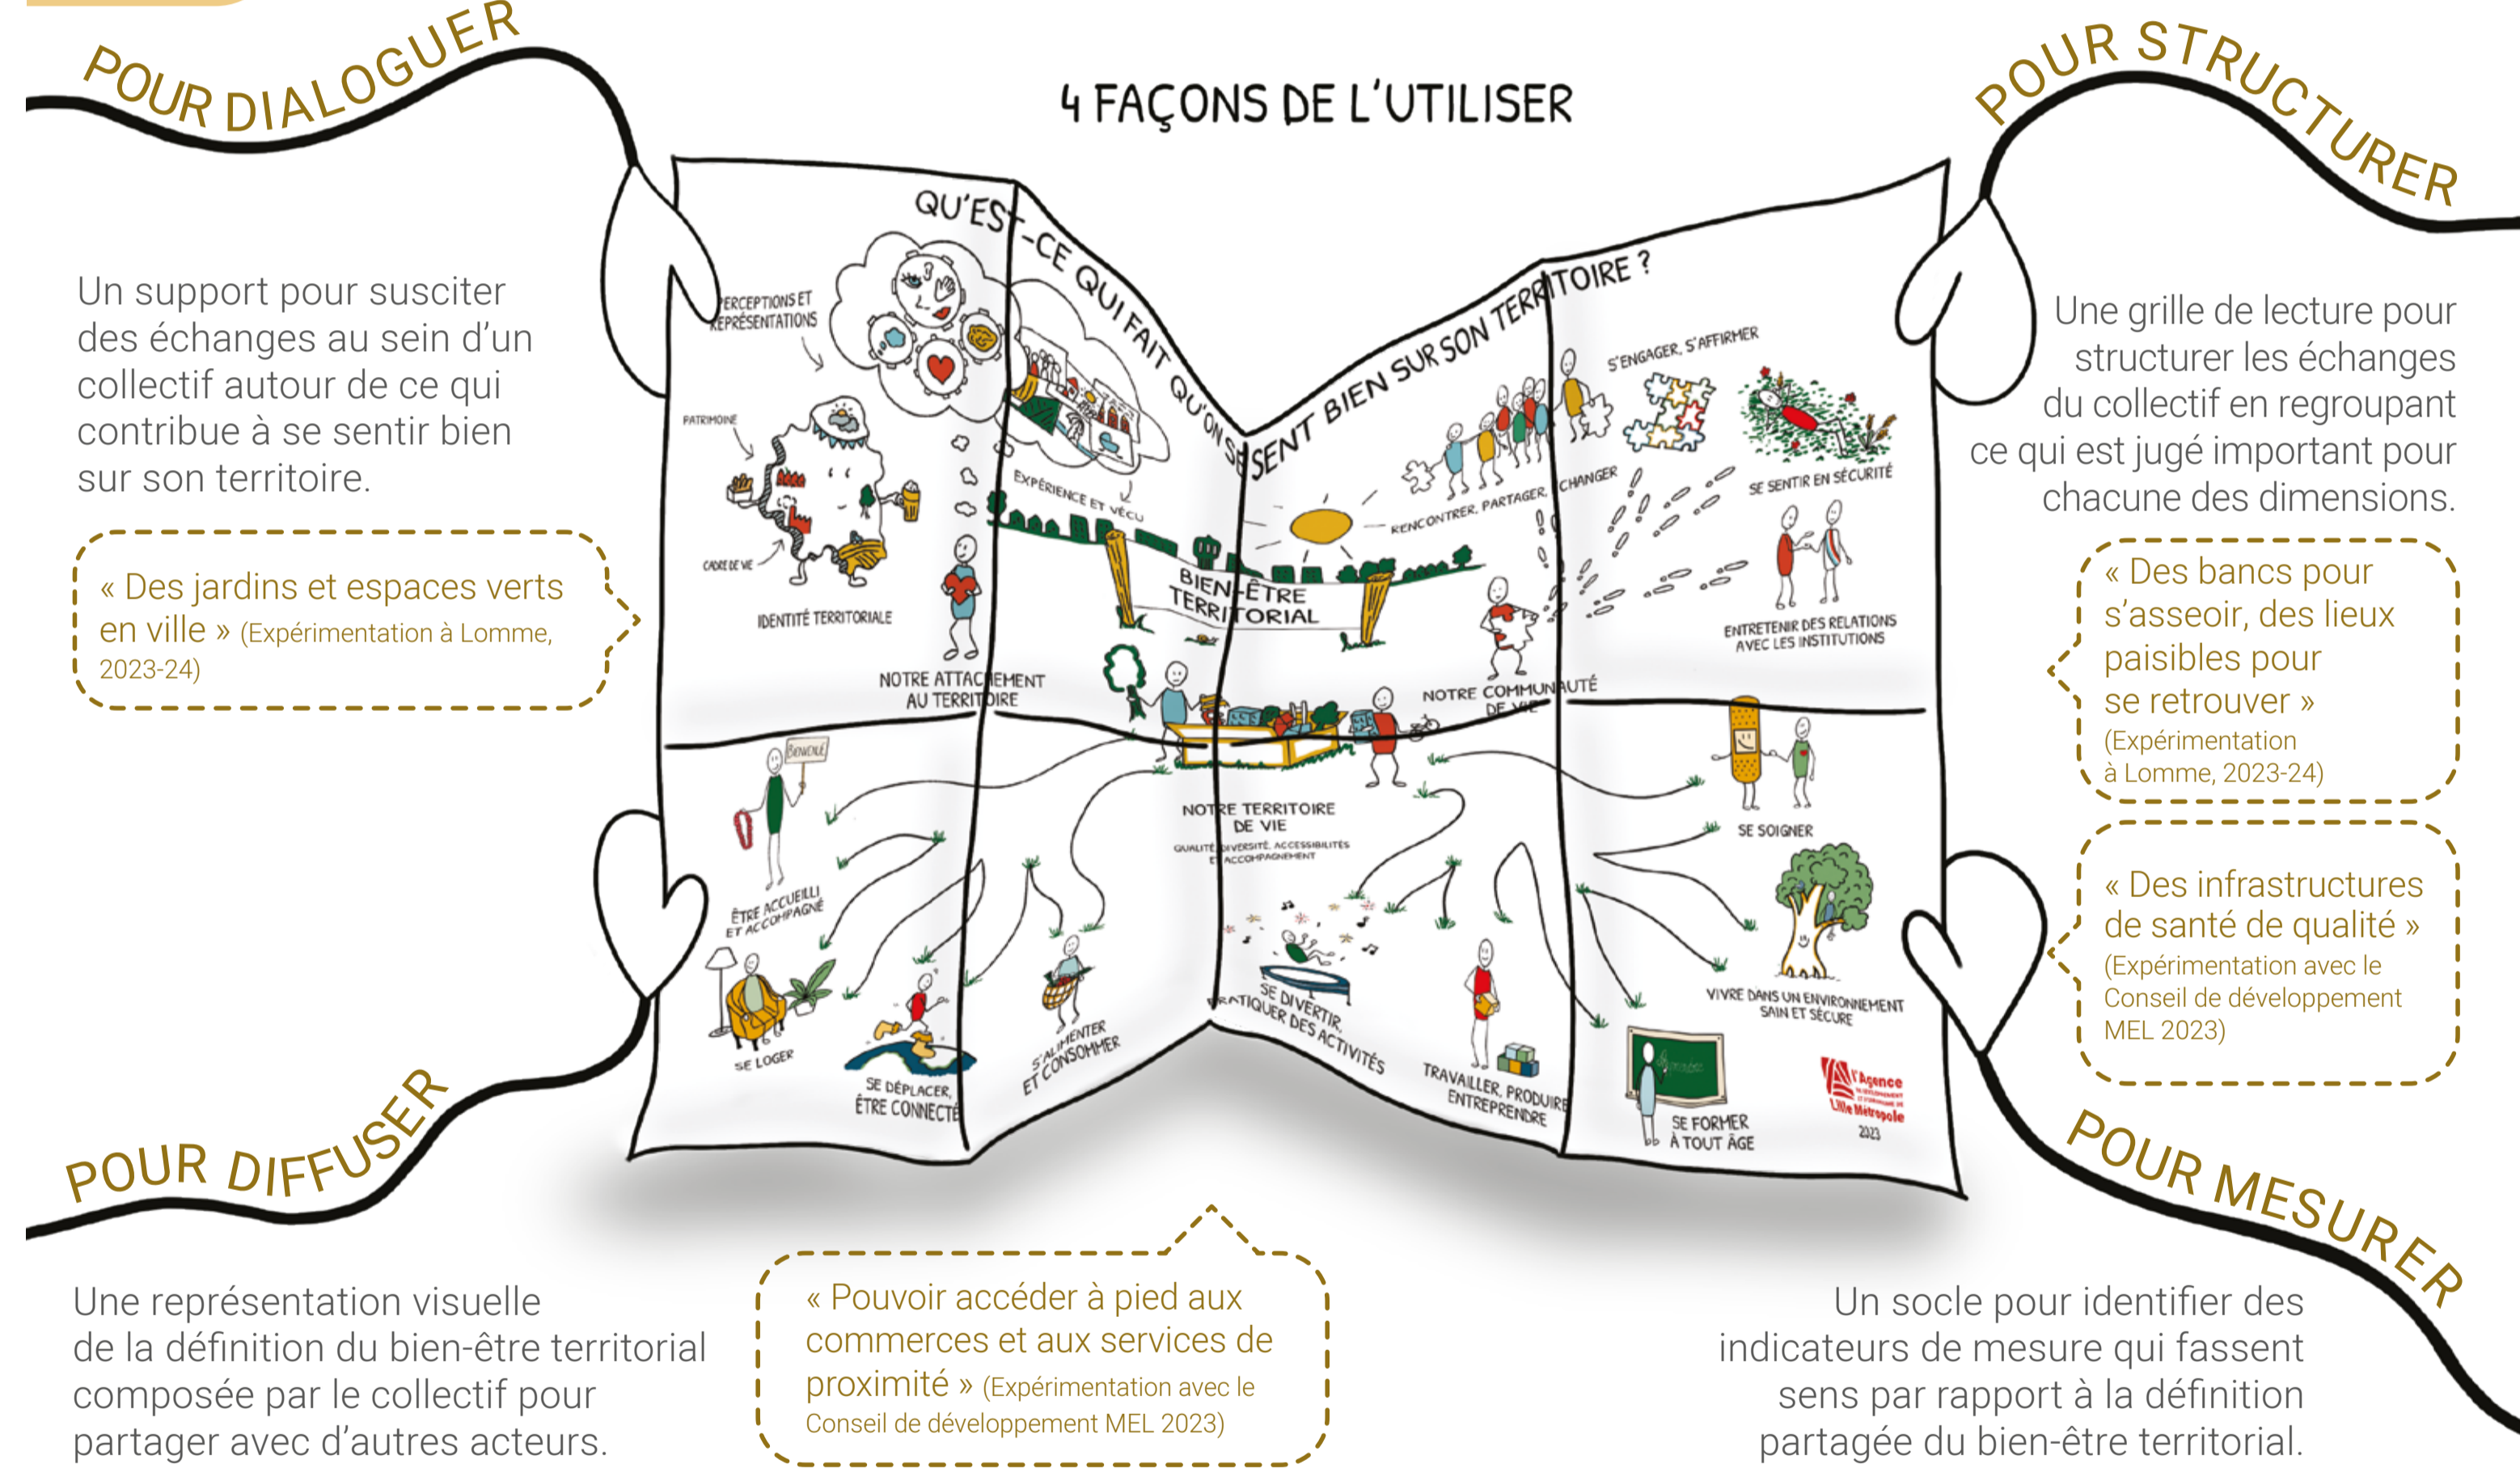 POUR DIALOGUER
Un support pour susciter
des échanges au sein d'un
collectif autour de ce qui
contribue à se sentir bien
sur son territoire.
« Des jardins et espaces verts
en ville » (Expérimentation à Lomme,
2023-24)
4 FAÇONS DE L'UTILISER
POUR STRUCTURER
Une grille de lecture pour
structurer les échanges
du collectif en regroupant
ce qui est jugé important pour
chacune des dimensions.
« Des bancs pour
s'asseoir, des lieux
paisibles pour
se retrouver »
(Expérimentation
à Lomme, 2023-24)
« Des infrastructures
de santé de qualité »
(Expérimentation avec le
Conseil de développement
MEL 2023)
QU'EST-CE QUI FAIT QU'ON SE SENT BIEN SUR SON TERRITOIRE ?
PERCEPTIONS ET
REPRÉSENTATIONS
PATRIMOINE
CADRE DE VIE
IDENTITÉ TERRITORIALE
EXPÉRIENCE ET VÉCU
NOTRE ATTACHEMENT
AU TERRITOIRE
BIEN-ÊTRE
TERRITORIAL
S'ENGAGER, S'AFFIRMER
RENCONTRER, PARTAGER, CHANGER
SE SENTIR EN SÉCURITÉ
ENTRETENIR DES RELATIONS
AVEC LES INSTITUTIONS
NOTRE COMMUNAUTÉ
DE VIE
BIENVENUE
ÊTRE ACCUEILLI
ET ACCOMPAGNÉ
NOTRE TERRITOIRE
DE VIE
QUALITÉ, DIVERSITÉ, ACCESSIBILITÉS
ET ACCOMPAGNEMENT
SE SOIGNER
SE LOGER
SE DÉPLACER,
ÊTRE CONNECTÉ
S'ALIMENTER
ET CONSOMMER
SE DIVERTIR,
PRATIQUER DES ACTIVITÉS
TRAVAILLER, PRODUIRE
ENTREPRENDRE
VIVRE DANS UN ENVIRONNEMENT
SAIN ET SÉCURE
SE FORMER
À TOUT ÂGE
l'Agence
Lille Métropole
2023
POUR DIFFUSER
Une représentation visuelle
de la définition du bien-être territorial
composée par le collectif pour
partager avec d'autres acteurs.
« Pouvoir accéder à pied aux
commerces et aux services de
proximité » (Expérimentation avec le
Conseil de développement MEL 2023)
POUR MESURER
Un socle pour identifier des
indicateurs de mesure qui fassent
sens par rapport à la définition
partagée du bien-être territorial.